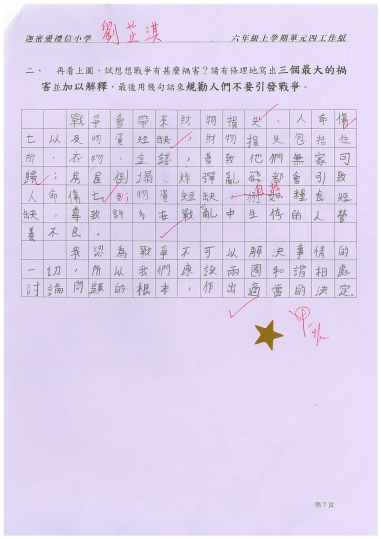 迦密愛禮信小學 劉芷淇 六年級上學期單元四工作紙
二、 再看上圖，試想想戰爭有甚麼禍害？請有條理地寫出三個最大的禍
害並加以解釋，最後用幾句話來規勸人們不要引發戰爭。
戰爭會帶來財物損失、人命傷
亡以及物資短缺，財物損失包括住
所、衣物、金錢，導致他們無家可
歸；房屋倒塌、炸彈亂飛都會引致
人命傷亡；物資短缺包括糧食短
缺，導致許多在戰亂中生活的人營
養不良。
我認為戰爭不可以解決事情的
一切，所以我們應該兩國和諧相處
討論問題的根本，作出適當的決定。
第7頁